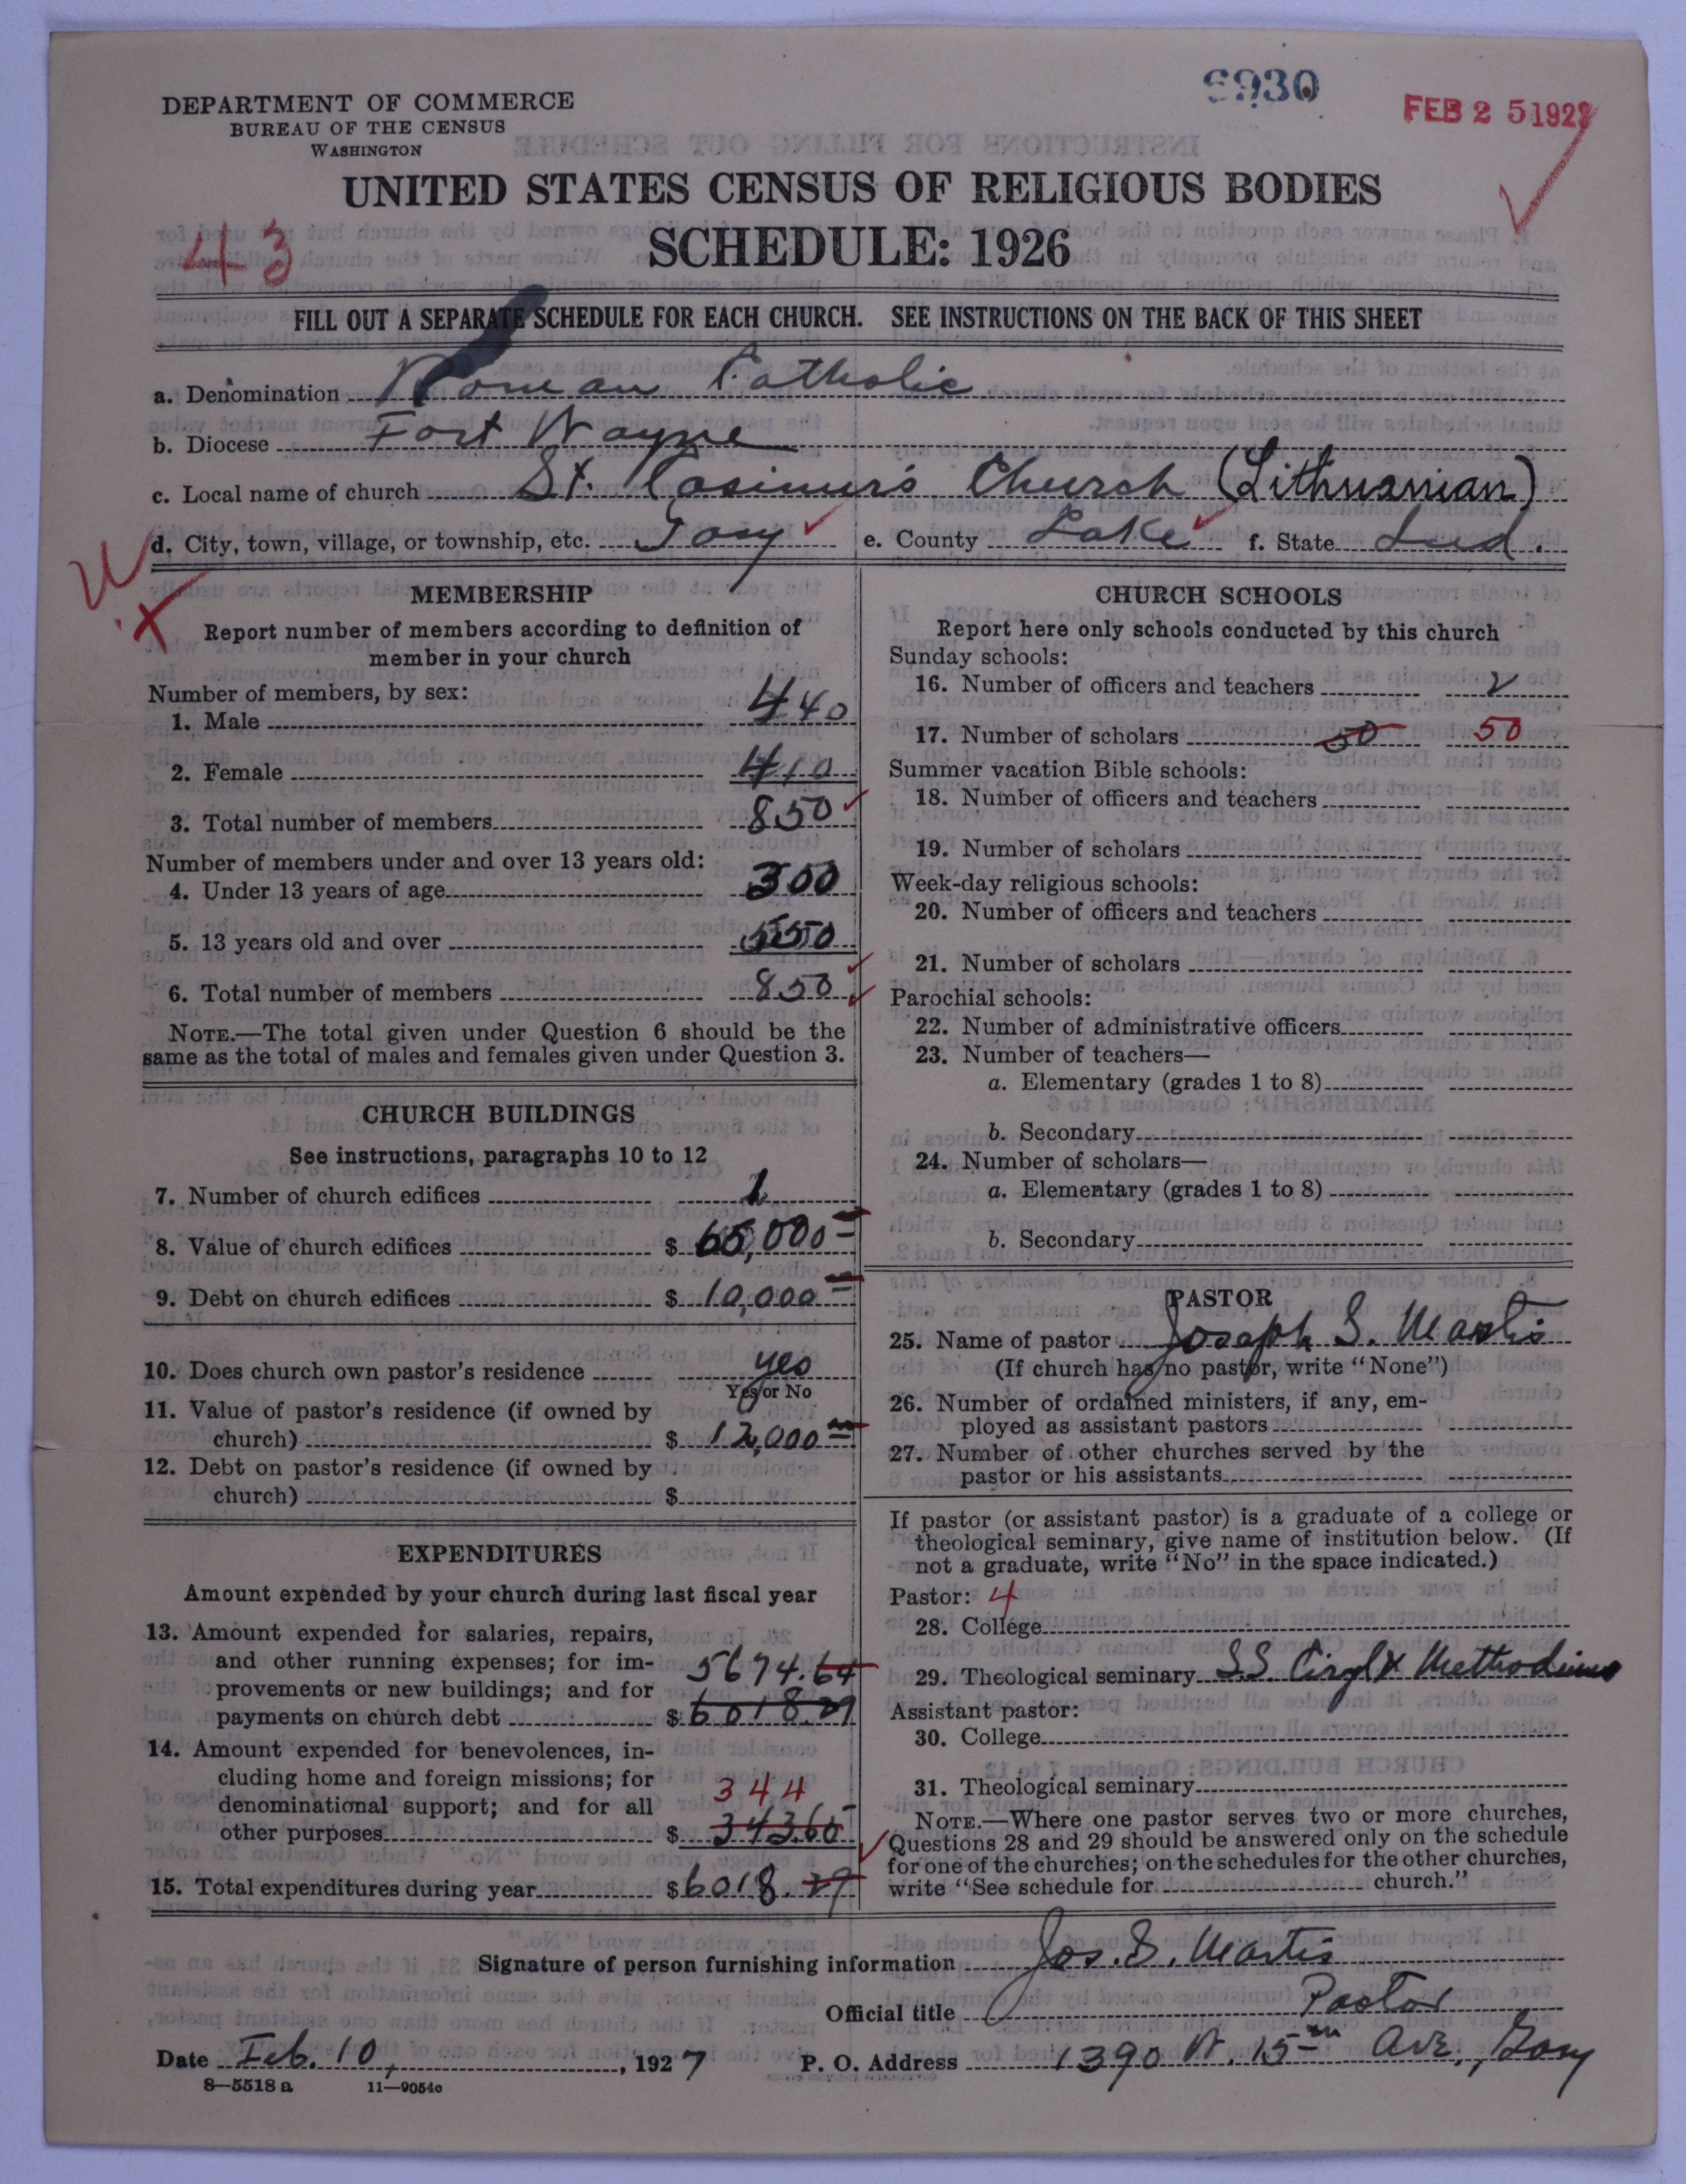 DEPARTMENT OF COMMERCE
BUREAU OF THE CENSUS
WASHINGTON
6930
FEB 25 1927
UNITED STATES CENSUS OF RELIGIOUS BODIES
SCHEDULE: 1926
43
FILL OUT A SEPARATE SCHEDULE FOR EACH CHURCH. SEE INSTRUCTIONS ON THE BACK OF THIS SHEET
a. Denomination Roman Catholic
b. Diocese Fort Wayne
c. Local name of church St. Casimir's Church (Lithuanian)
d. City, town, village, or township, etc. Gary e. County Lake f. State Ind.
MEMBERSHIP
Report number of members according to definition of
member in your church
Number of members, by sex:
1. Male 440
2. Female 410
3. Total number of members 850
Number of members under and over 13 years old:
4. Under 13 years of age 300
5. 13 years old and over 550
6. Total number of members 850
NOTE.—The total given under Question 6 should be the
same as the total of males and females given under Question 3.
CHURCH BUILDINGS
See instructions, paragraphs 10 to 12
7. Number of church edifices 1
8. Value of church edifices $ 65,000
9. Debt on church edifices $ 10,000
10. Does church own pastor's residence yes
Yes or No
11. Value of pastor's residence (if owned by
church) $ 12,000
12. Debt on pastor's residence (if owned by
church) $
EXPENDITURES
Amount expended by your church during last fiscal year
13. Amount expended for salaries, repairs,
and other running expenses; for im- 5674.64
provements or new buildings; and for
payments on church debt $ 6018.29
14. Amount expended for benevolences, in-
cluding home and foreign missions; for 344
denominational support; and for all
other purposes $ 343.65
15. Total expenditures during year $ 6018.29
CHURCH SCHOOLS
Report here only schools conducted by this church
Sunday schools:
16. Number of officers and teachers 2
17. Number of scholars 50 50
Summer vacation Bible schools:
18. Number of officers and teachers
19. Number of scholars
Week-day religious schools:
20. Number of officers and teachers
21. Number of scholars
Parochial schools:
22. Number of administrative officers
23. Number of teachers—
a. Elementary (grades 1 to 8)
b. Secondary
24. Number of scholars—
a. Elementary (grades 1 to 8)
b. Secondary
PASTOR
25. Name of pastor Joseph S. Martis
(If church has no pastor, write "None")
26. Number of ordained ministers, if any, em-
ployed as assistant pastors
27. Number of other churches served by the
pastor or his assistants
If pastor (or assistant pastor) is a graduate of a college or
theological seminary, give name of institution below. (If
not a graduate, write "No" in the space indicated.)
Pastor: 4
28. College
29. Theological seminary SS Ciryl & Methodius
Assistant pastor:
30. College
31. Theological seminary
NOTE.—Where one pastor serves two or more churches,
Questions 28 and 29 should be answered only on the schedule
for one of the churches; on the schedules for the other churches,
write "See schedule for church."
Signature of person furnishing information Jos. S. Martis
Official title Pastor
Date Feb. 10, 1927 P. O. Address 1390 W. 15th Ave., Gary
8—5518 a 11—9054c